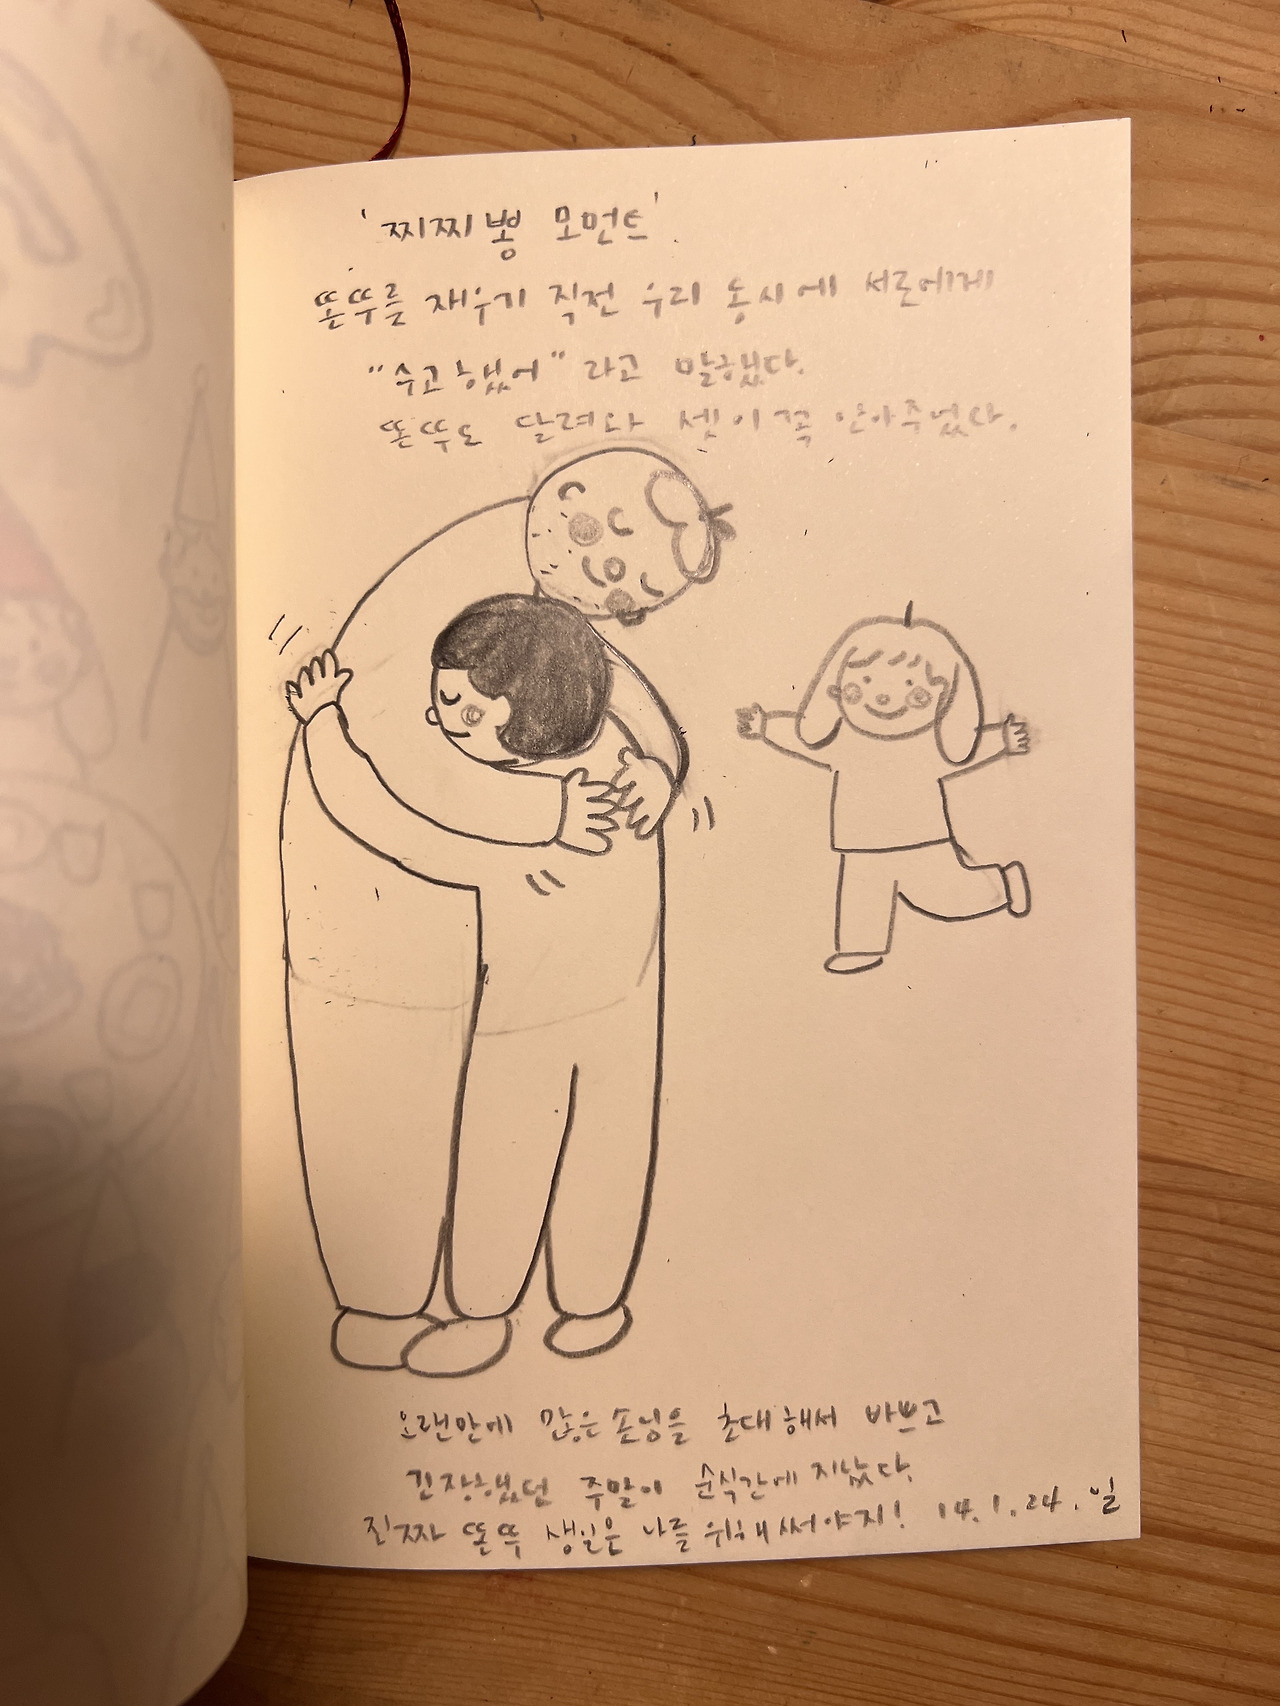 '찌찌뽕 모먼트'
똔뚜를 재우기 직전 우리 동시에 서로에게
"수고했어" 라고 말했다.
똔뚜도 달려와 셋이 꼭 안아주었다.
오랜만에 많은 손님을 초대해서 바쁘고
긴장했던 주말이 순식간에 지났다.
진짜 똔뚜 생일은 나를 위해 써야지! 14.1.24.일